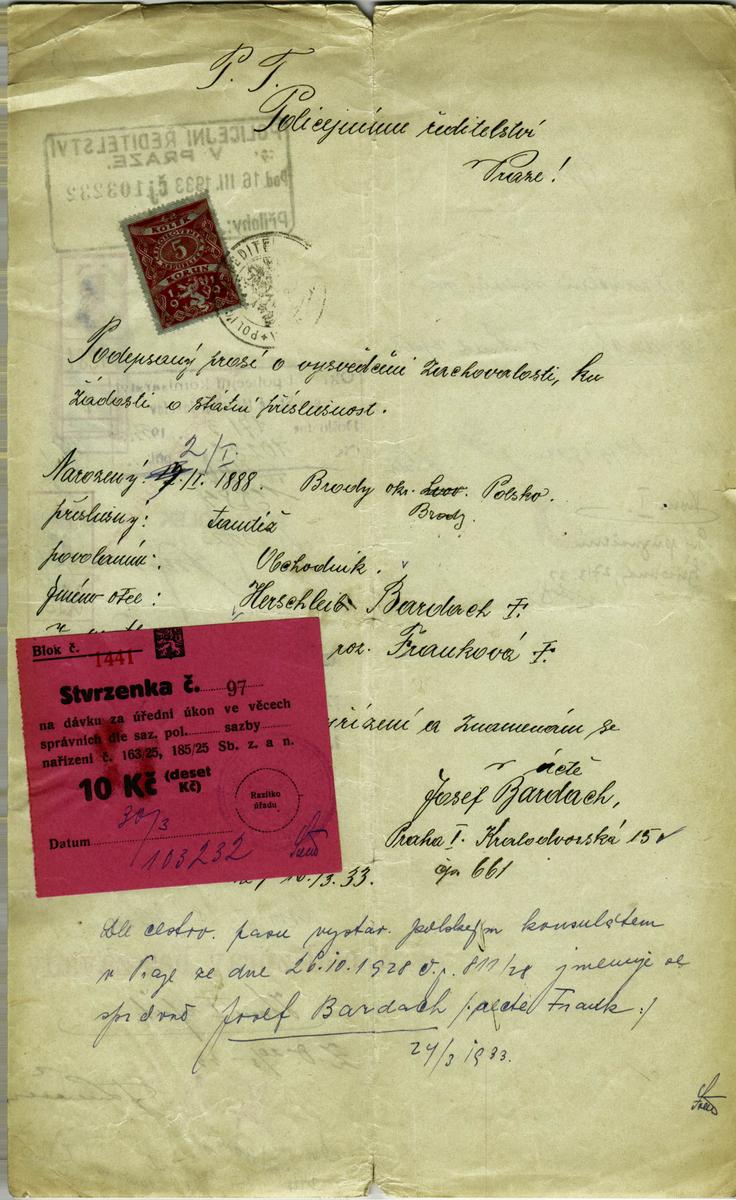 P. T.
Policejnímu ředitelství
v Praze!
POLICEJNÍ ŘEDITELSTVÍ
V PRAZE.
Pod. 16 III. 1933 čj 103232
Přílohy:
KOLEK
5
KORUN
Podepsaný prosí o vysvědčení zachovalosti, ku
žádosti o státní příslušnost.
2/I.
Narozený: /I. 1888. Brody okr. Lvov. Polsko.
Brody.
příslušný: tamtéž
povoláním: Obchodník.
Jméno otce: Herschleib Bardach
roz. Franková
vyřízení a znamenám se
v úctě
Josef Bardach,
Praha I. Kralodvorská 15
čp. 661
/3. 33.
Blok č. 1441
Stvrzenka č. 97
na dávku za úřední úkon ve věcech
správních dle saz. pol. sazby
nařízení č. 163/25, 185/25 Sb. z. a n.
10 Kč (deset
Kč)
Razítko
úřadu
30/3
Datum
103232
Dle cestov. pasu vystav. polským konsulátem
v Praze ze dne 26.10.1928 č.j. 811/28 jmenuje se
správně Josef Bardach /: recte Frank :/
24/3 1933.